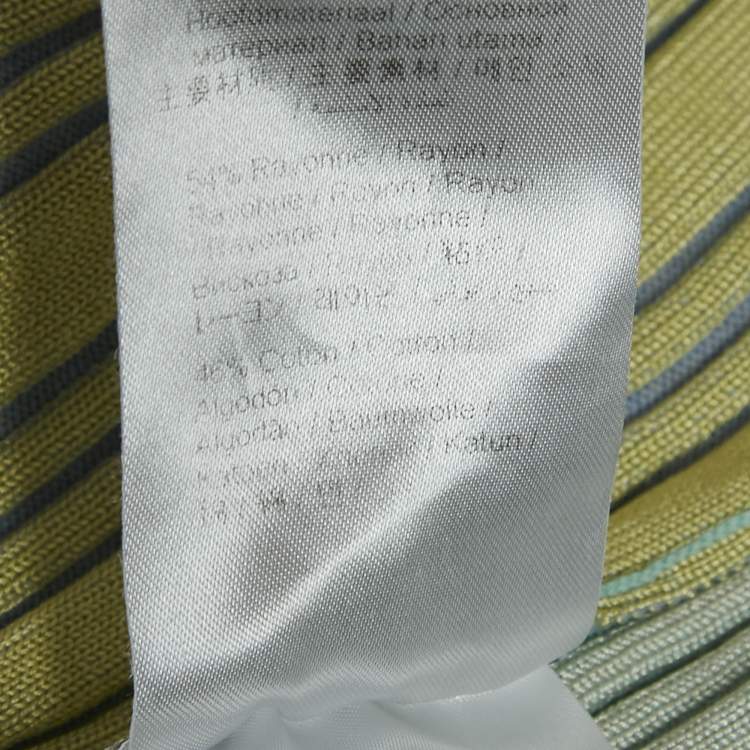 Hoofdmateriaal / Основной
материал / Bahan utama /
主要材料 / 主要素材 / 메인
54% Rayonne / Rayon /
Rayonne / Rayon / Rayon
/ Rayonne / Rayonne /
Вискоза / Rayon / 粘
レーヨン / 레이온 /
46% Coton / Cotton /
Algodón / Cotone /
Algodão / Baumwolle /
Katoen / / Katun /
棉 / 綿 / 면